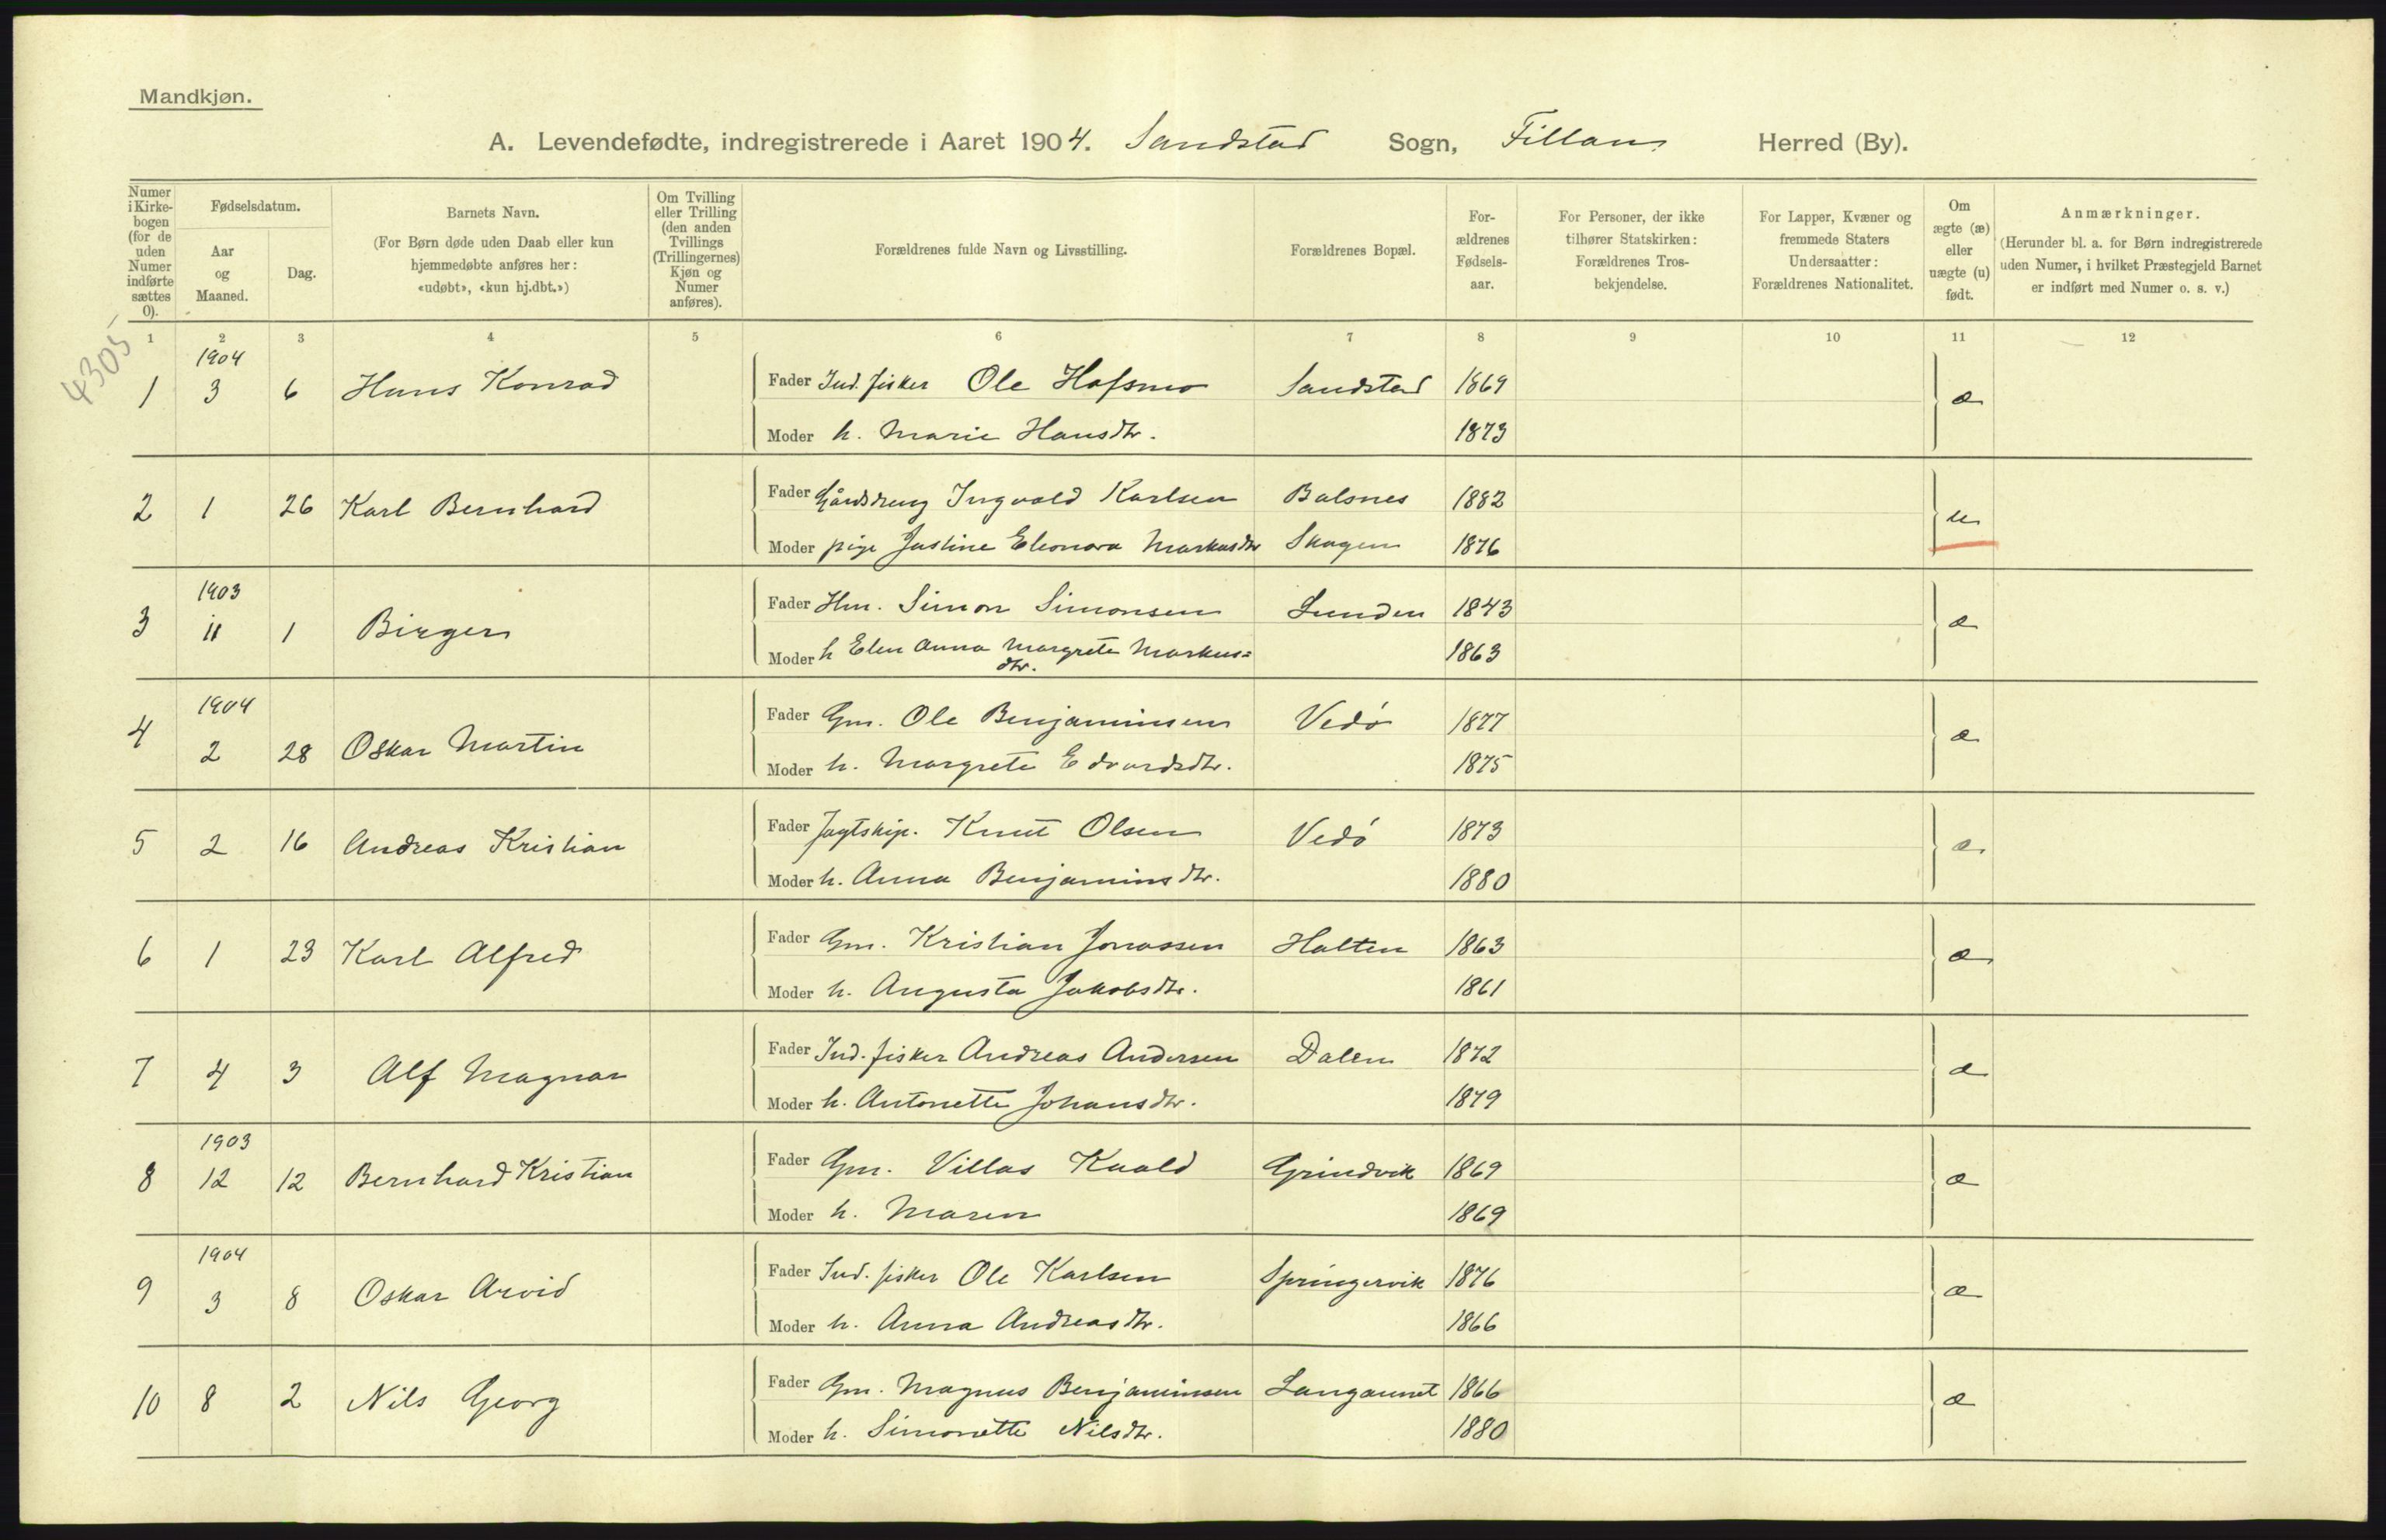 Mandkjøn.
A. Levendefødte, indregistrerede i Aaret 1904. Sandstad Sogn, Fillan Herred (By).
Numer i Kirkebogen (for de uden Numer indførte sættes 0).
Fødselsdatum.
Aar og Maaned.
Dag.
Barnets Navn.
(For Børn døde uden Daab eller kun hjemmedøbte anføres her: «udøbt», «kun hj.dbt.»)
Om Tvilling eller Trilling (den anden Tvillings (Trillingernes) Kjøn og Numer anføres).
Forældrenes fulde Navn og Livsstilling.
Forældrenes Bopæl.
Forældrenes Fødselsaar.
For Personer, der ikke tilhører Statskirken: Forældrenes Trosbekjendelse.
For Lapper, Kvæner og fremmede Staters Undersaatter: Forældrenes Nationalitet.
Om ægte (æ) eller uægte (u) født.
Anmærkninger.
(Herunder bl. a. for Børn indregistrerede uden Numer, i hvilket Præstegjeld Barnet er indført med Numer o. s. v.)
1 2 3 4 5 6 7 8 9 10 11 12
4305
1904
1 3 6 Hans Konrad Fader Ind. fisker Ole Hafsmo Sandstad 1869 æ
Moder h. Marie Hansdtr. 1873
2 1 26 Karl Bernhard Fader Gårdsdreng Ingvald Karlsen Balsnes 1882 u
Moder pige Justine Eleonora Markusdtr Skagen 1876
1903
3 11 1 Birger Fader Hm. Simon Simonsen Lunden 1843 æ
Moder h Elen Anna Margrete Markus=
dtr. 1863
1904
4 2 28 Oskar Martin Fader Gm. Ole Benjaminsen Vedø 1877 æ
Moder h. Margrete Edvardsdtr. 1875
5 2 16 Andreas Kristian Fader Jagtskip. Knut Olsen Vedø 1873 æ
Moder h. Anna Benjaminsdtr. 1880
6 1 23 Karl Alfred Fader Gm. Kristian Jonassen Halten 1863 æ
Moder h. Augusta Jakobsdtr. 1861
7 4 3 Alf Magnar Fader Ind. fisker Andreas Andersen Dalen 1872 æ
Moder h. Antonette Johansdtr. 1879
1903
8 12 12 Bernhard Kristian Fader Gm. Villas Kaald Grindvik 1869 æ
Moder h. Maren 1869
1904
9 3 8 Oskar Arvid Fader Ind. fisker Ole Karlsen Springervik 1876 æ
Moder h. Anna Andreasdtr. 1866
10 8 2 Nils Georg Fader Gm. Magnus Benjaminsen Langaunet 1866 æ
Moder h. Simonette Nilsdtr. 1880